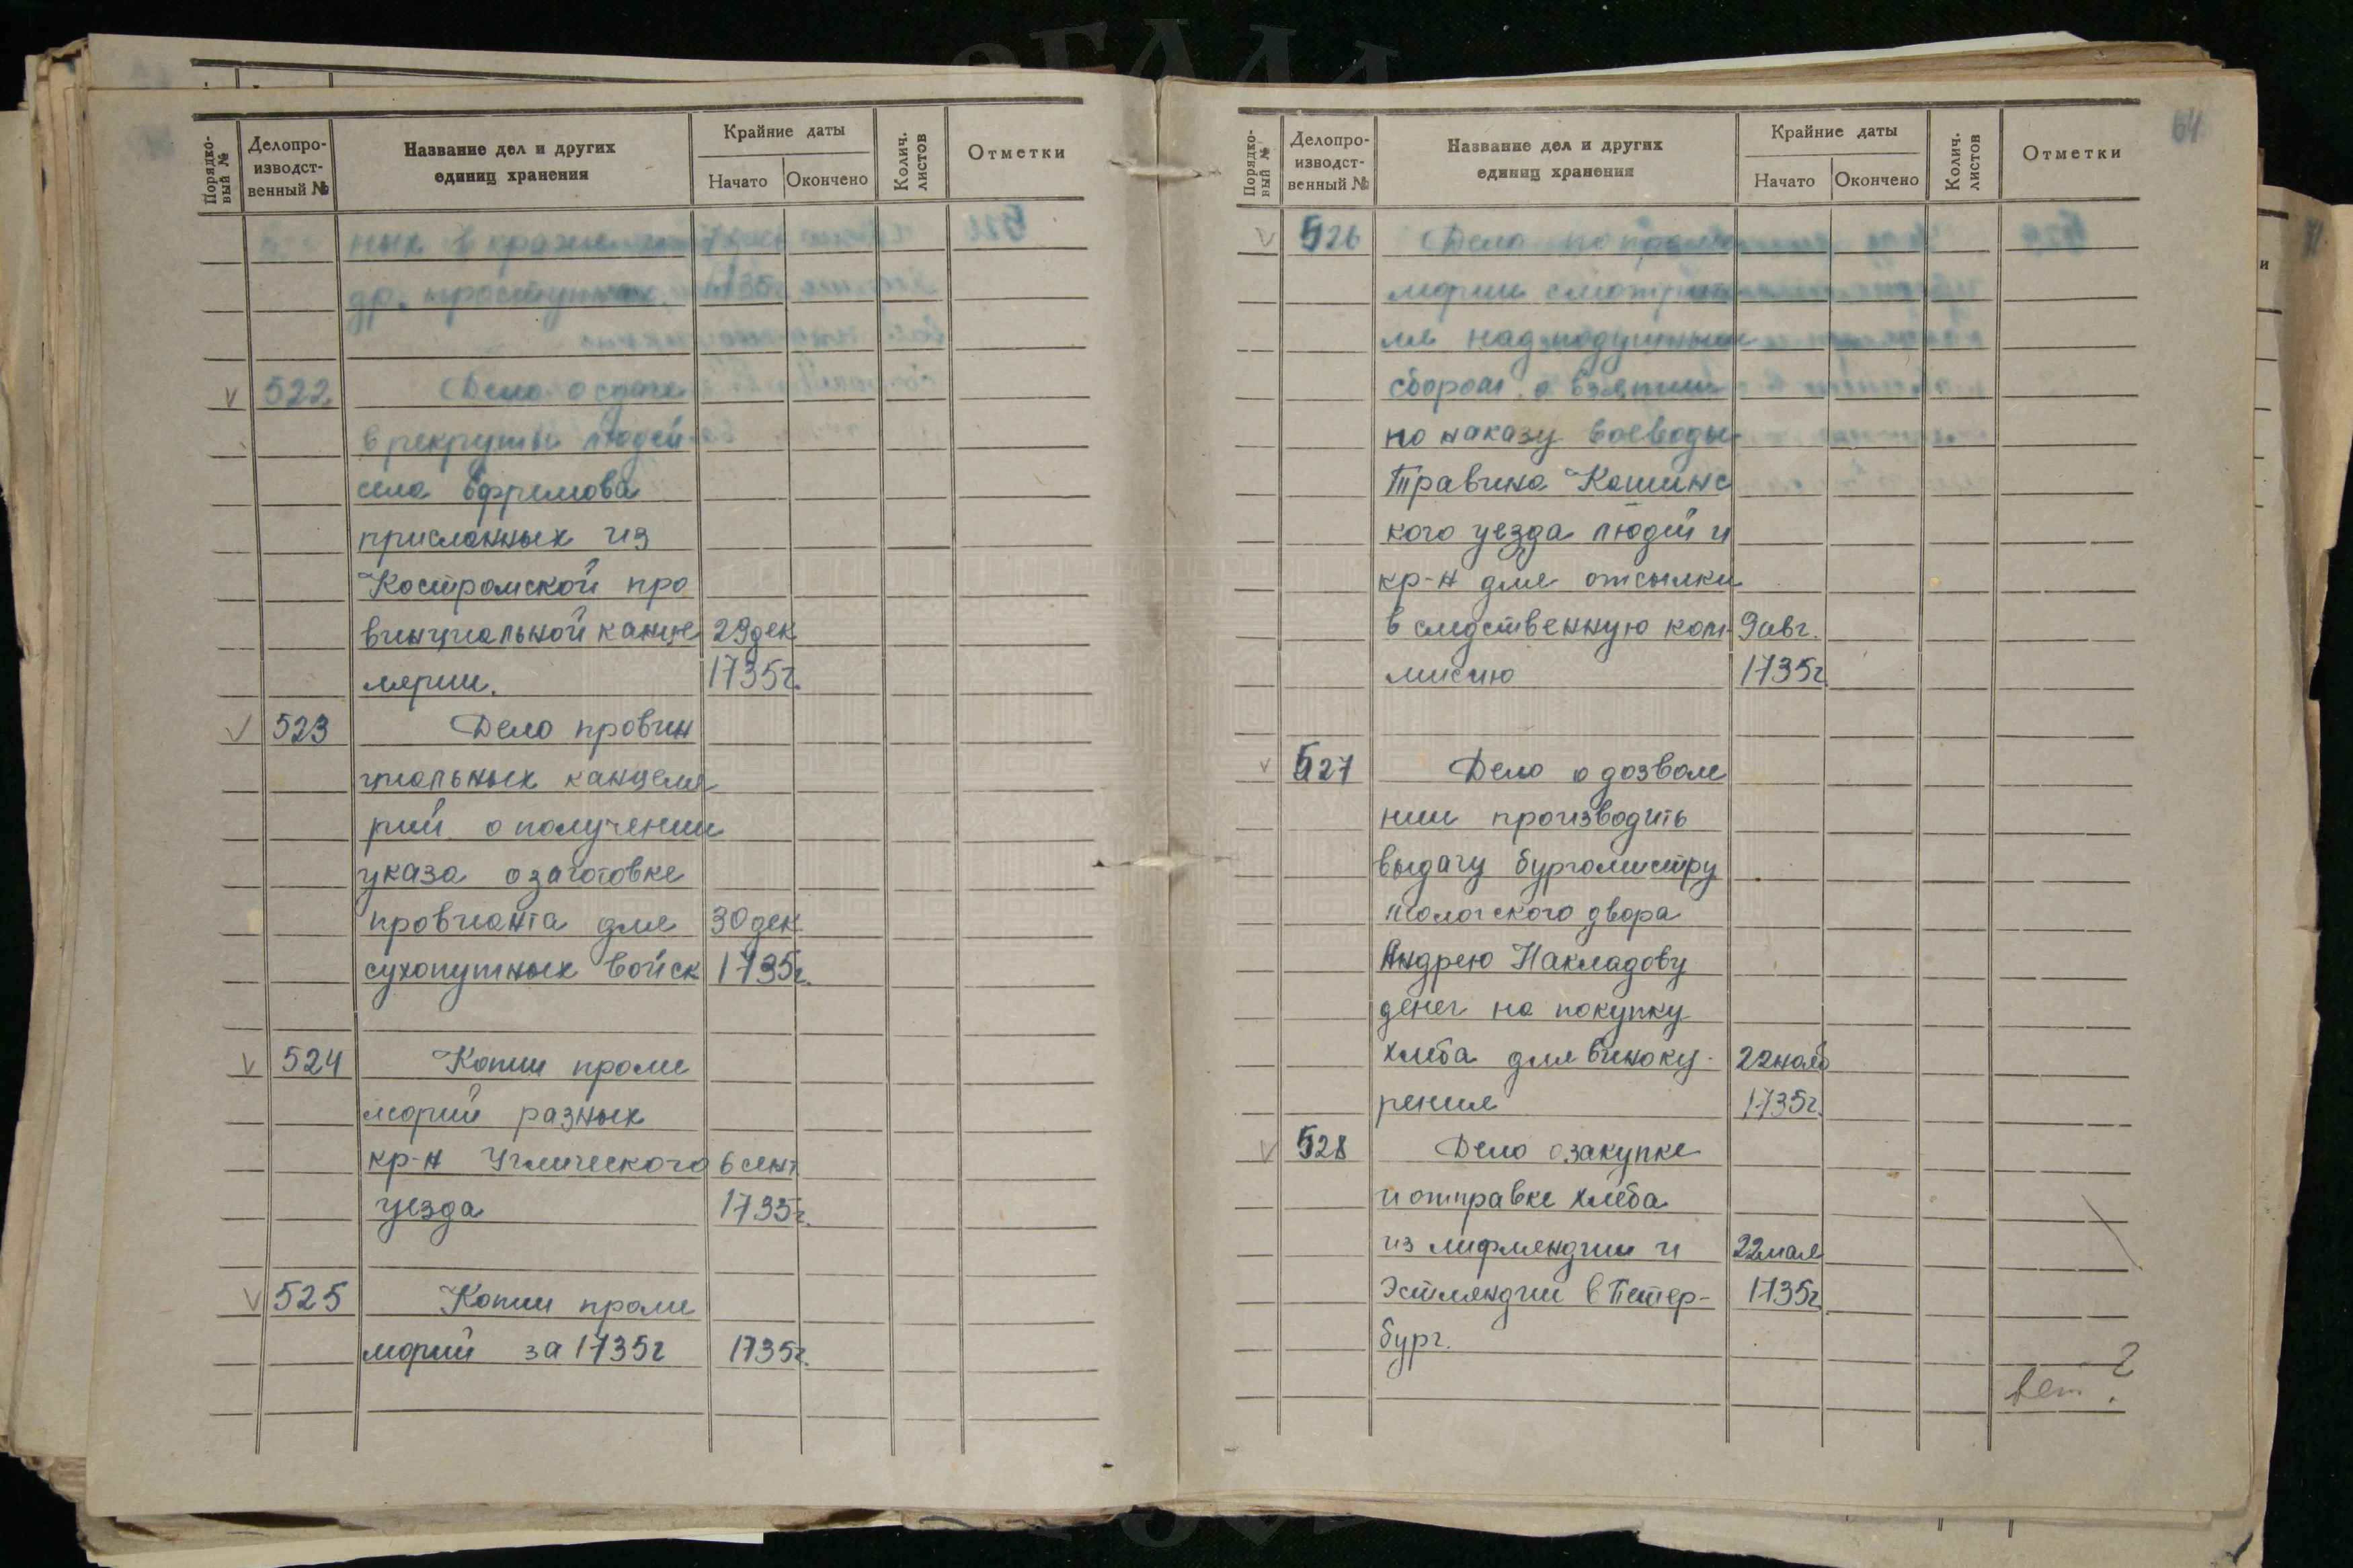 Порядко-
вый №
Делопро-
изводст-
венный №
Название дел и других
единиц хранения
Крайние даты
Начато
Окончено
Колич.
листов
Отметки
ных в краже и
др. проступках 1735г
522 Дело о сдаче
в рекруты людей
села Ефремова
присланных из
Костромской про
винциальной канце 29 дек
лярии. 1735г.
523 Дело провин
циальных канцеля
рий о получении
указа о заготовке
провианта для 30 дек
сухопутных войск 1735г.
524 Копии проме
морий разных
кр-н Углического 6 сент
уезда 1735г.
525 Копии проме
морий за 1735г 1735г.
64
Порядко-
вый №
Делопро-
изводст-
венный №
Название дел и других
единиц хранения
Крайние даты
Начато
Окончено
Колич.
листов
Отметки
526 Дело по проме
мории смотрите
ля над подушным
сбором о взятии
по наказу воеводы
Травина Кашинс
кого уезда людей и
кр-н для отсылки
в следственную ком- 9 авг.
мисию 1735г.
527 Дело о дозволе
нии производить
выдачу бургомистру
мологского двора
Андрею Накладову
денег на покупку
хлеба для виноку- 22 нояб
рения 1735г.
528 Дело о закупке
и отправке хлеба
из лифляндии и 22 мая
Эстляндии в Петер- 1735г.
бург.